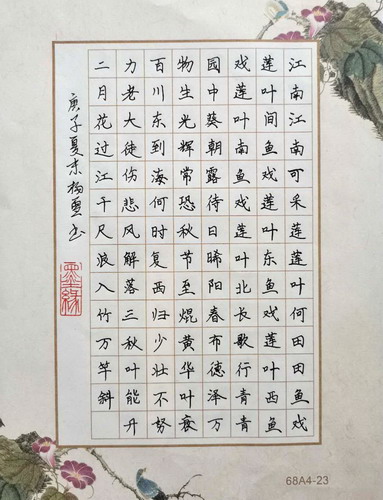 江南江南可采莲莲叶何田田鱼戏
莲叶间鱼戏莲叶东鱼戏莲叶西鱼
戏莲叶南鱼戏莲叶北长歌行青青
园中葵朝露待日晞阳春布德泽万
物生光辉常恐秋节至焜黄华叶衰
百川东到海何时复西归少壮不努
力老大徒伤悲风解落三秋叶能开
二月花过江千尺浪入竹万竿斜
庚子夏末杨书
墨缘
68A4-23